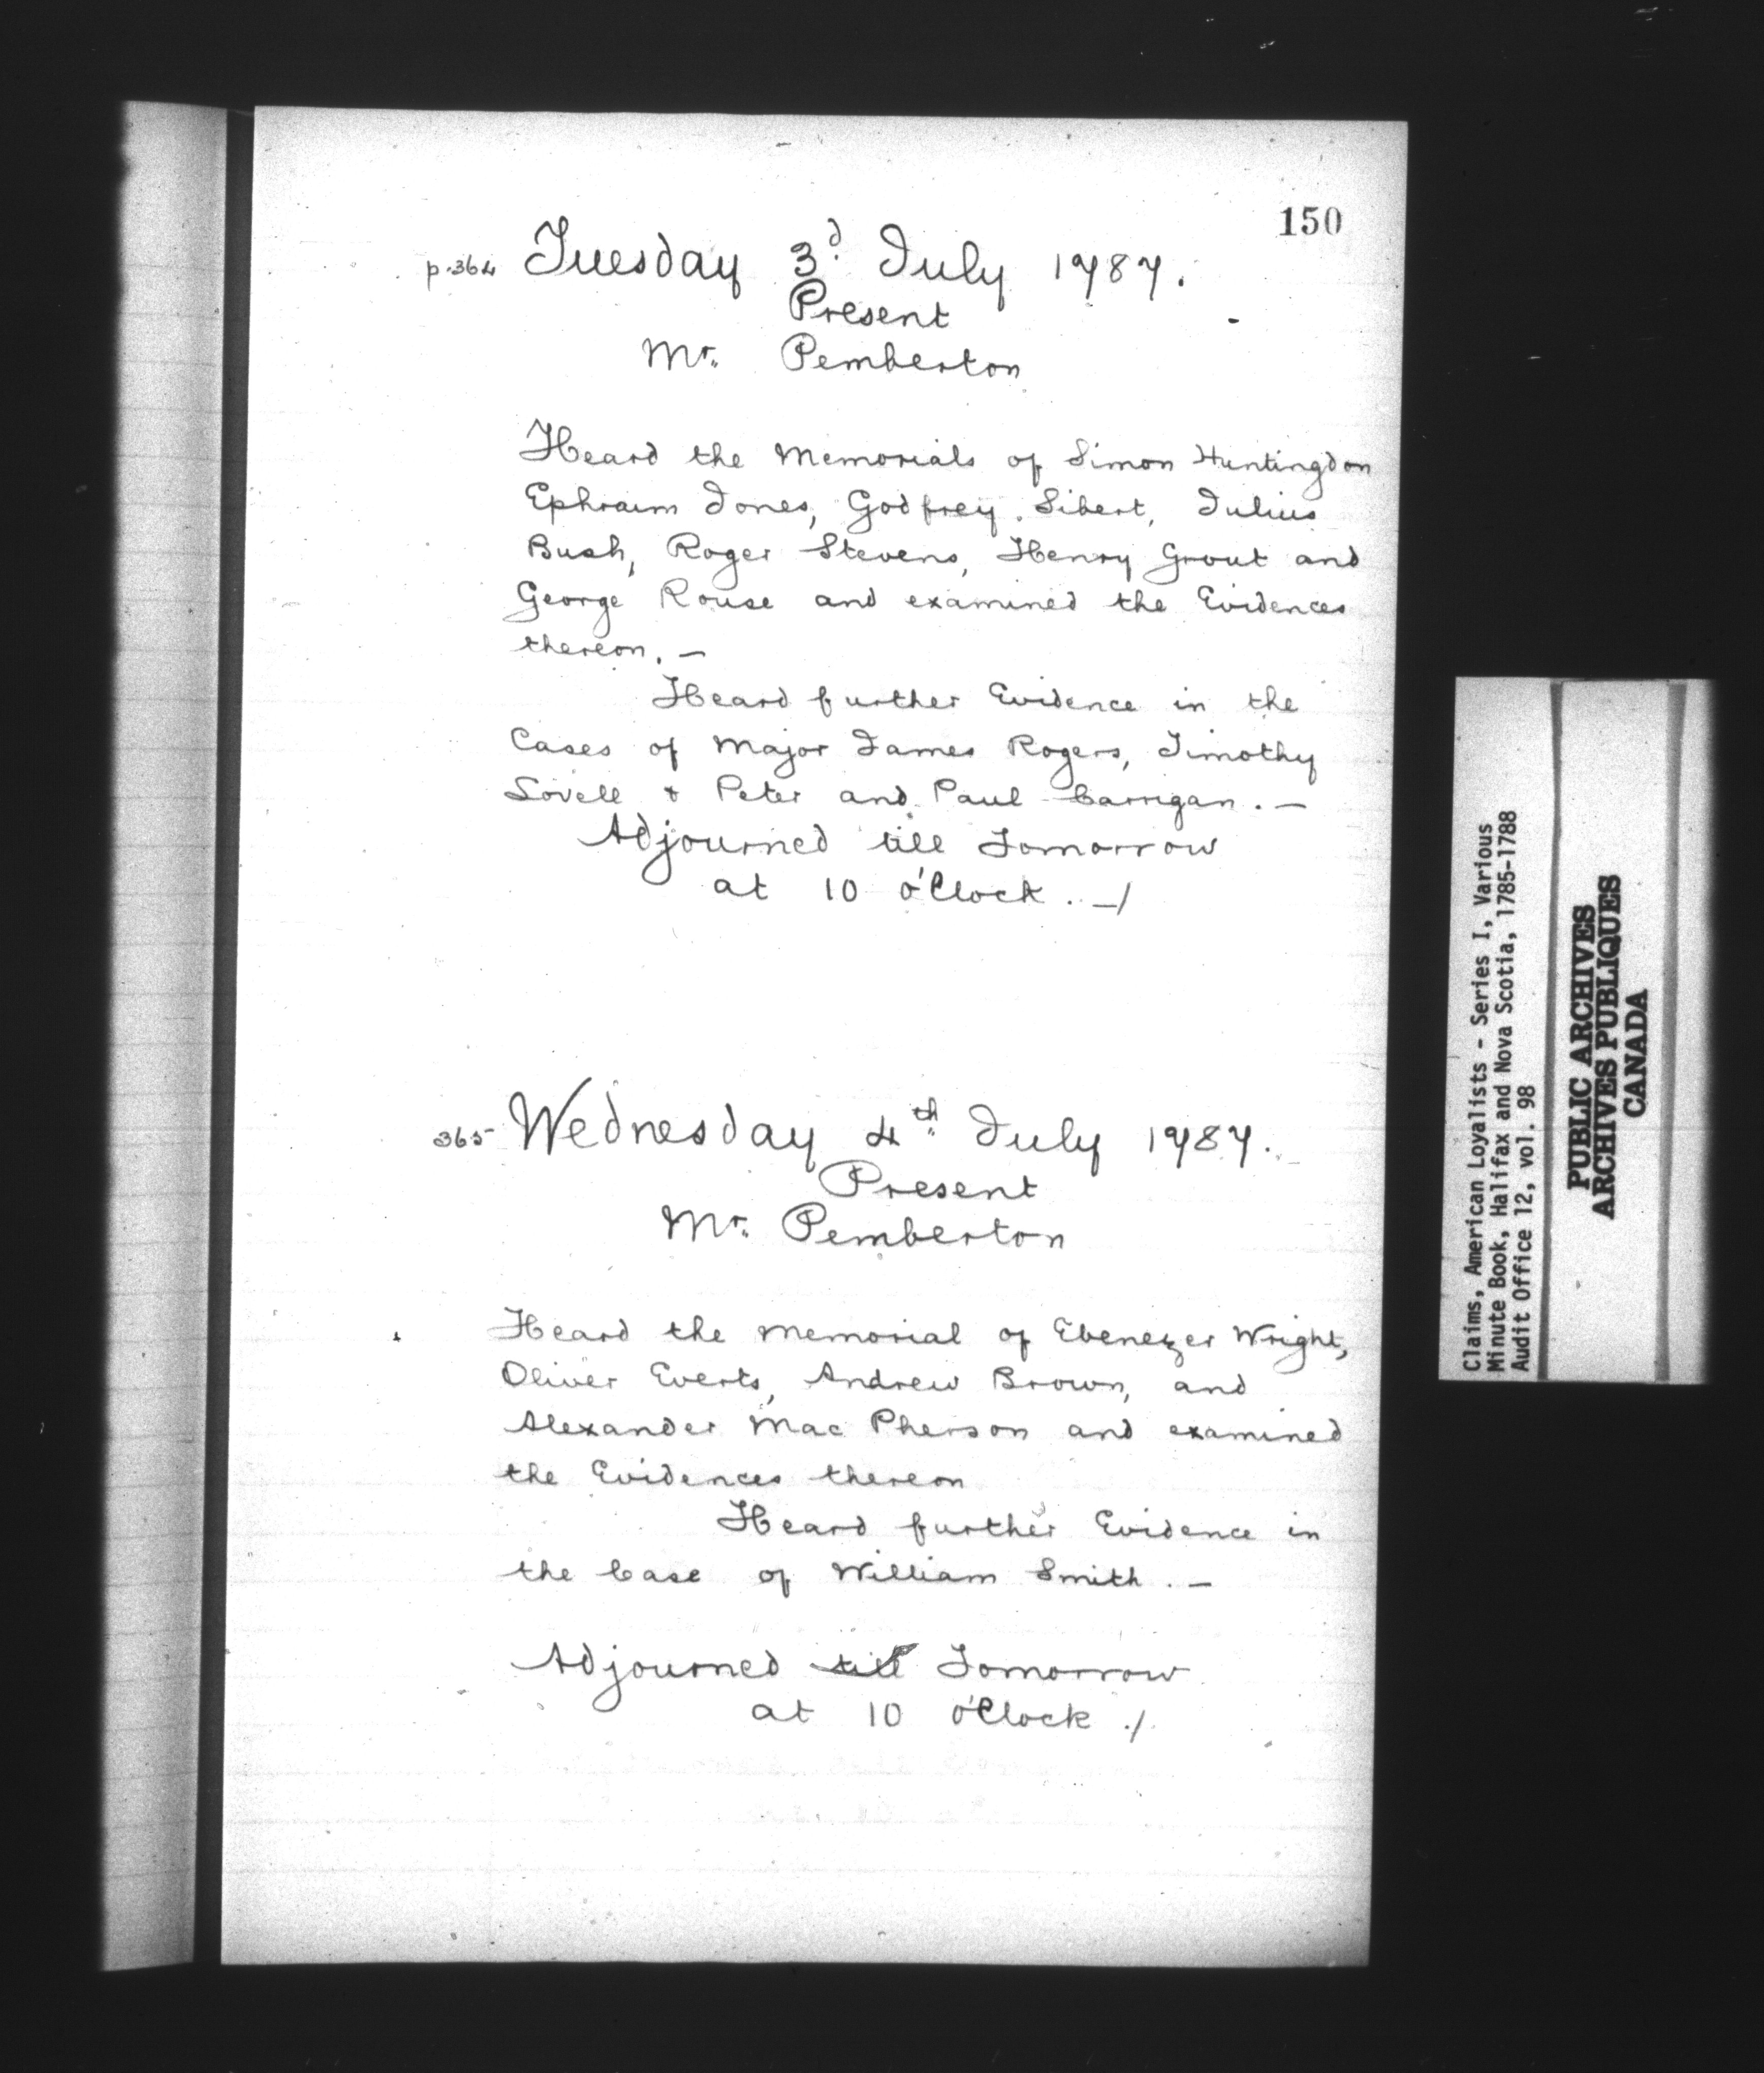 150
p.364 Tuesday 3d. July 1787.
Present
Mr. Pemberton
Heard the Memorials of Simon Huntingdon
Ephraim Jones, Godfrey Sibert, Julius
Bush, Roger Stevens, Henry Grout and
George Rouse and examined the Evidences
thereon. —
Heard further Evidence in the
Cases of Major James Rogers, Timothy
Lovell & Peter and Paul Carrigan. —
Adjourned till Tomorrow
at 10 o'Clock. —/
365 Wednesday 4th. July 1787.
Present
Mr. Pemberton
Heard the Memorial of Ebenezer Wright,
Oliver Everts, Andrew Brown, and
Alexander Mac Pherson and examined
the Evidences thereon
Heard further Evidence in
the Case of William Smith. —
Adjourned till Tomorrow
at 10 o'Clock ./
Claims, American Loyalists - Series I, Various
Minute Book, Halifax and Nova Scotia, 1785-1788
Audit Office 12, vol. 98
PUBLIC ARCHIVES
ARCHIVES PUBLIQUES
CANADA